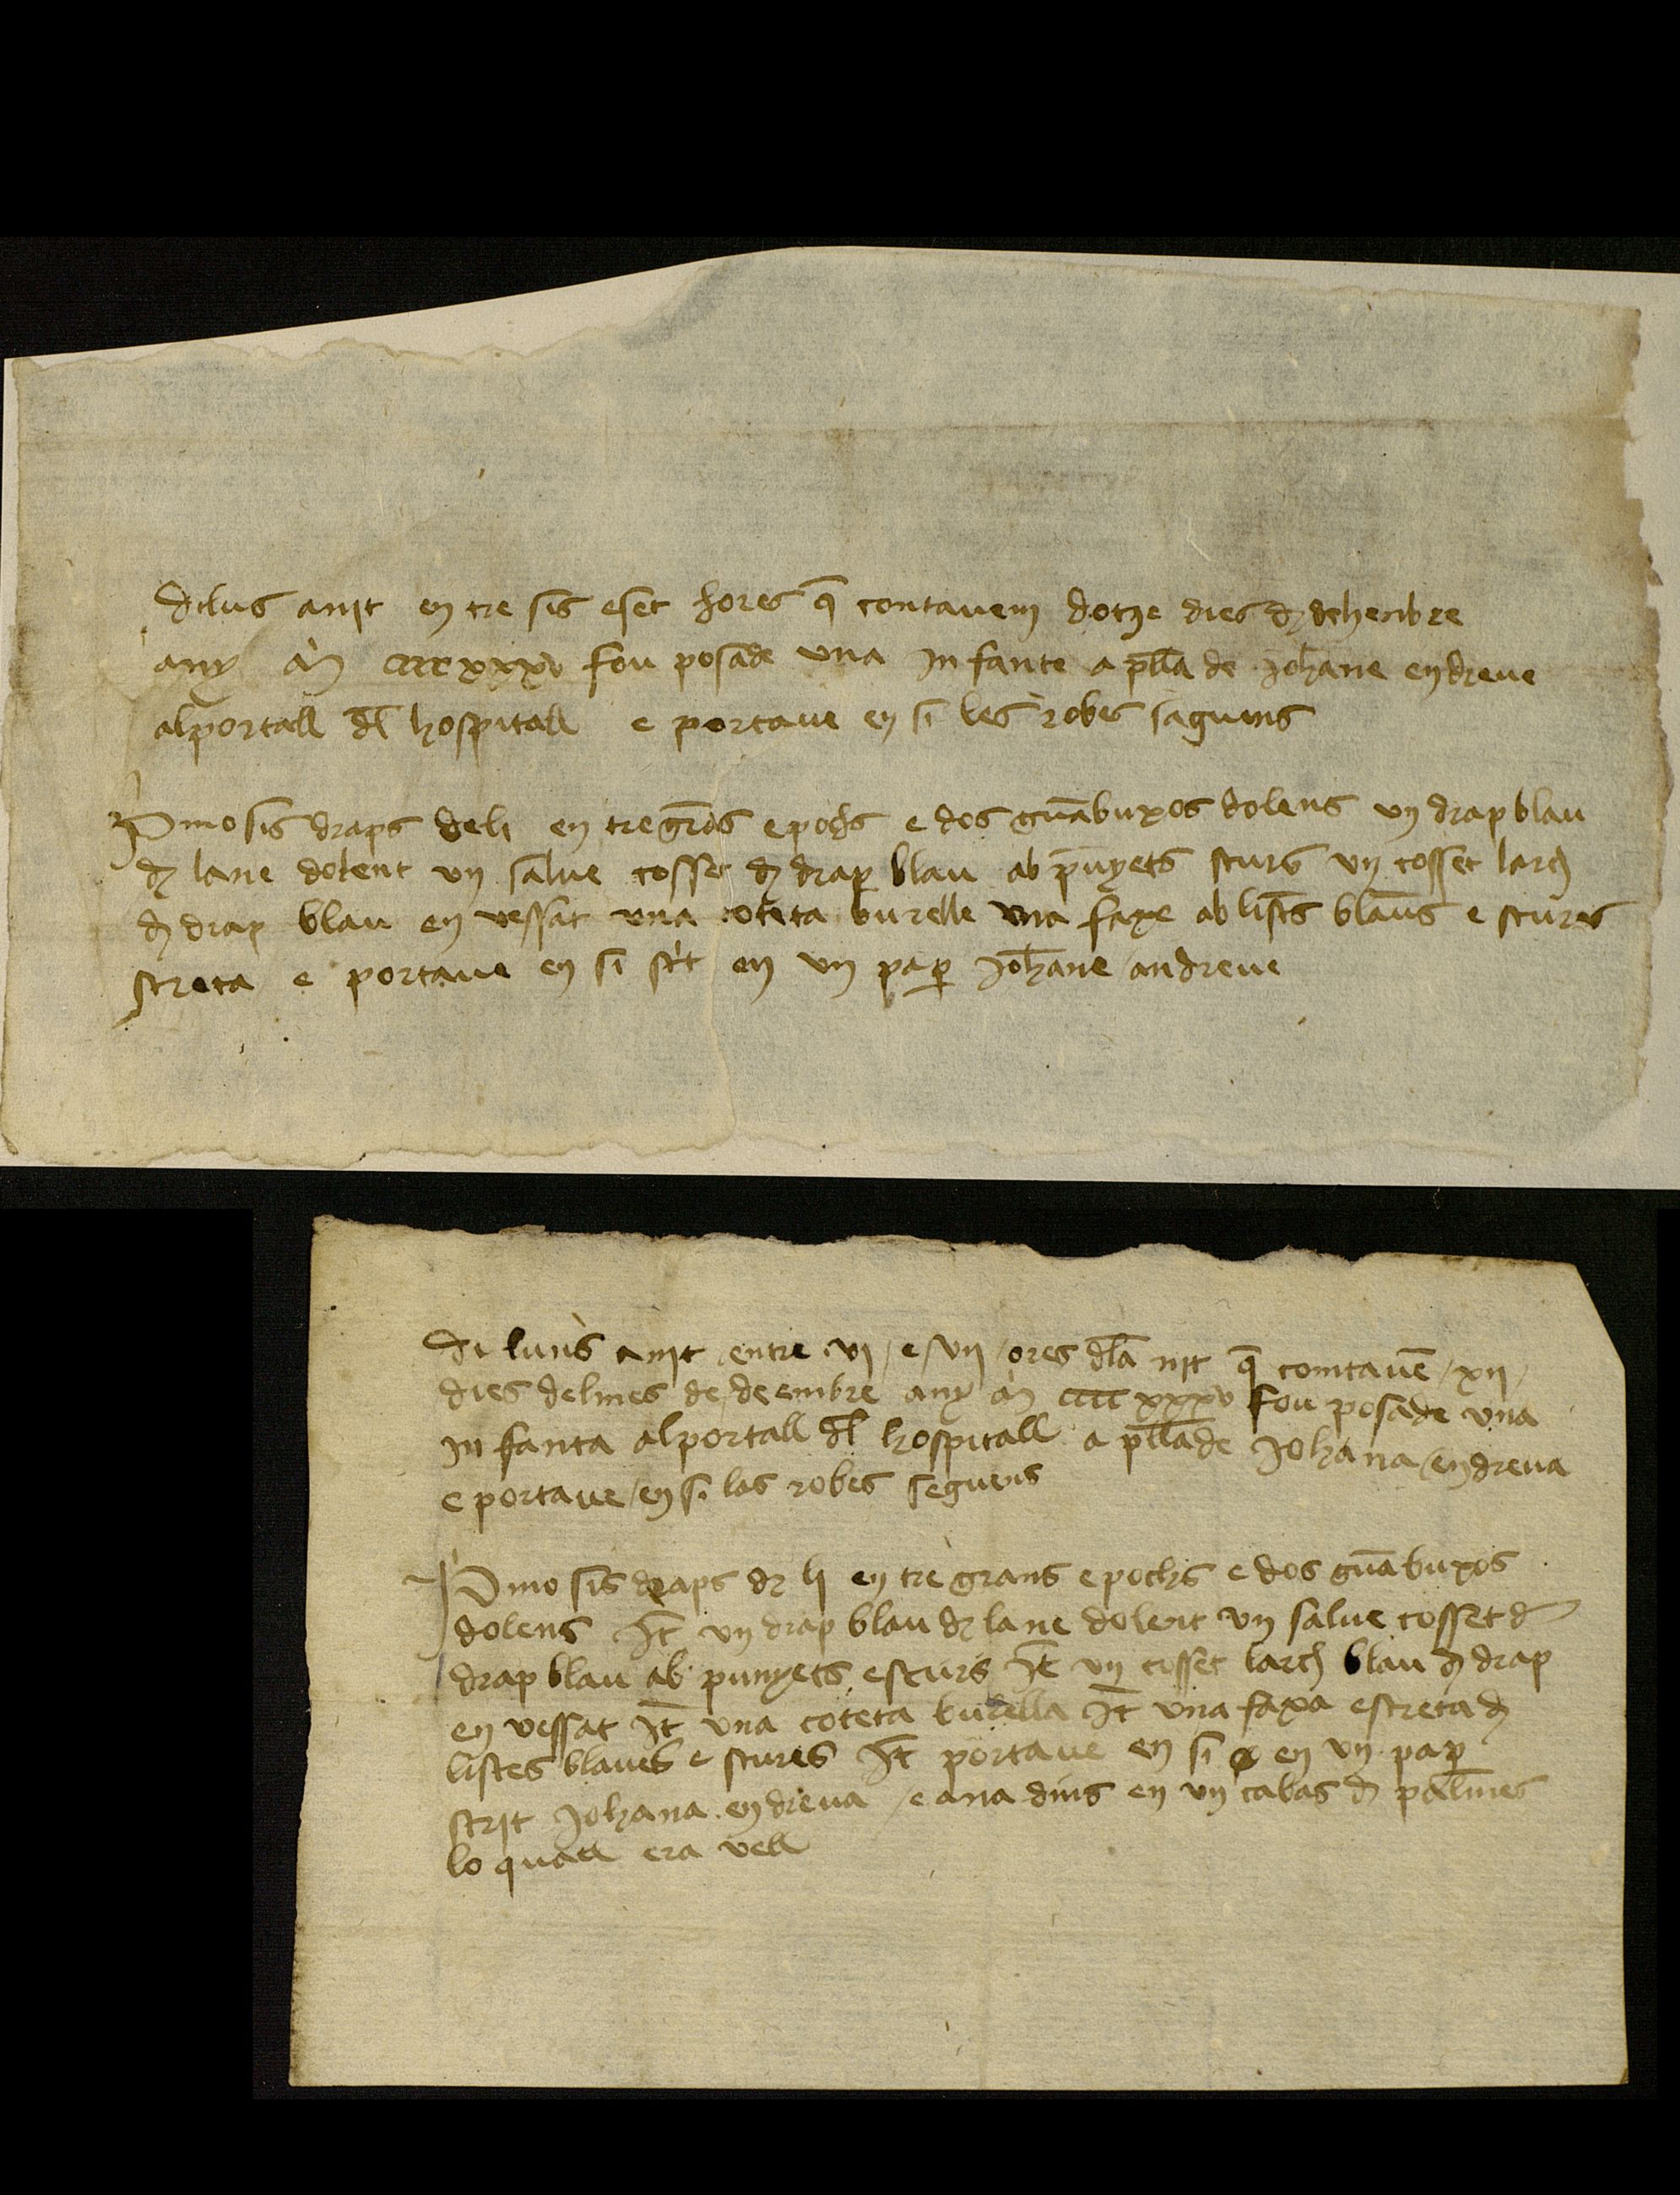 dilus a nit en tre sis e set hores q̄ contavem dotze dies d̄ dehenbre
any m̄ cccc xxxv fou posade una in fante a pellade Johane endreve
al portall dl̄ hospitall e portave en si les robes saguens
Pͥmo sis draps de li en tre grās e pochs e dos guāбuxos dolens un drap blau
d̄ lane dolent un salue cosset d̄ drap blau ab punyets scurs un cosset larch
d̄ drap blau en vessat una coteta burelle una faxe ab listēs blaues e scures
streta e portave en si scͥt en un pap̄ Johane andreve
di luns a nit entre vi / e / vii / ores dl̄a nit q̄ comtavē / xii /
dies del mes de / deembre any m̄ cccc xxxv fou posade una
in fanta al portall dl̄ hospitall a pellade Johana / endreva
e portave / en si las robes seguens
Pͥmo sis draps d̄ li en tre grans e pochs e dos guāбuxos
dolens Jt̄ un drap blau d̄ lane dolent un salue cosset d̄
drap blau ab punyets escurs Jt̄ un cosset larch blau d̄ drap
en vessat Jt̄ una coteta burella Jt̄ una faxa estreta d̄
listes blaues e scures Jt̄ portave en si en un pap̄
scrit Johana endreva / e ana dins en un cabas d̄ palmes
lo quall era vell